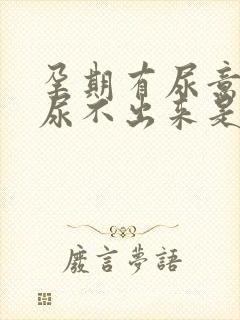 孕期有尿意
尿不出来是
廢言夢語